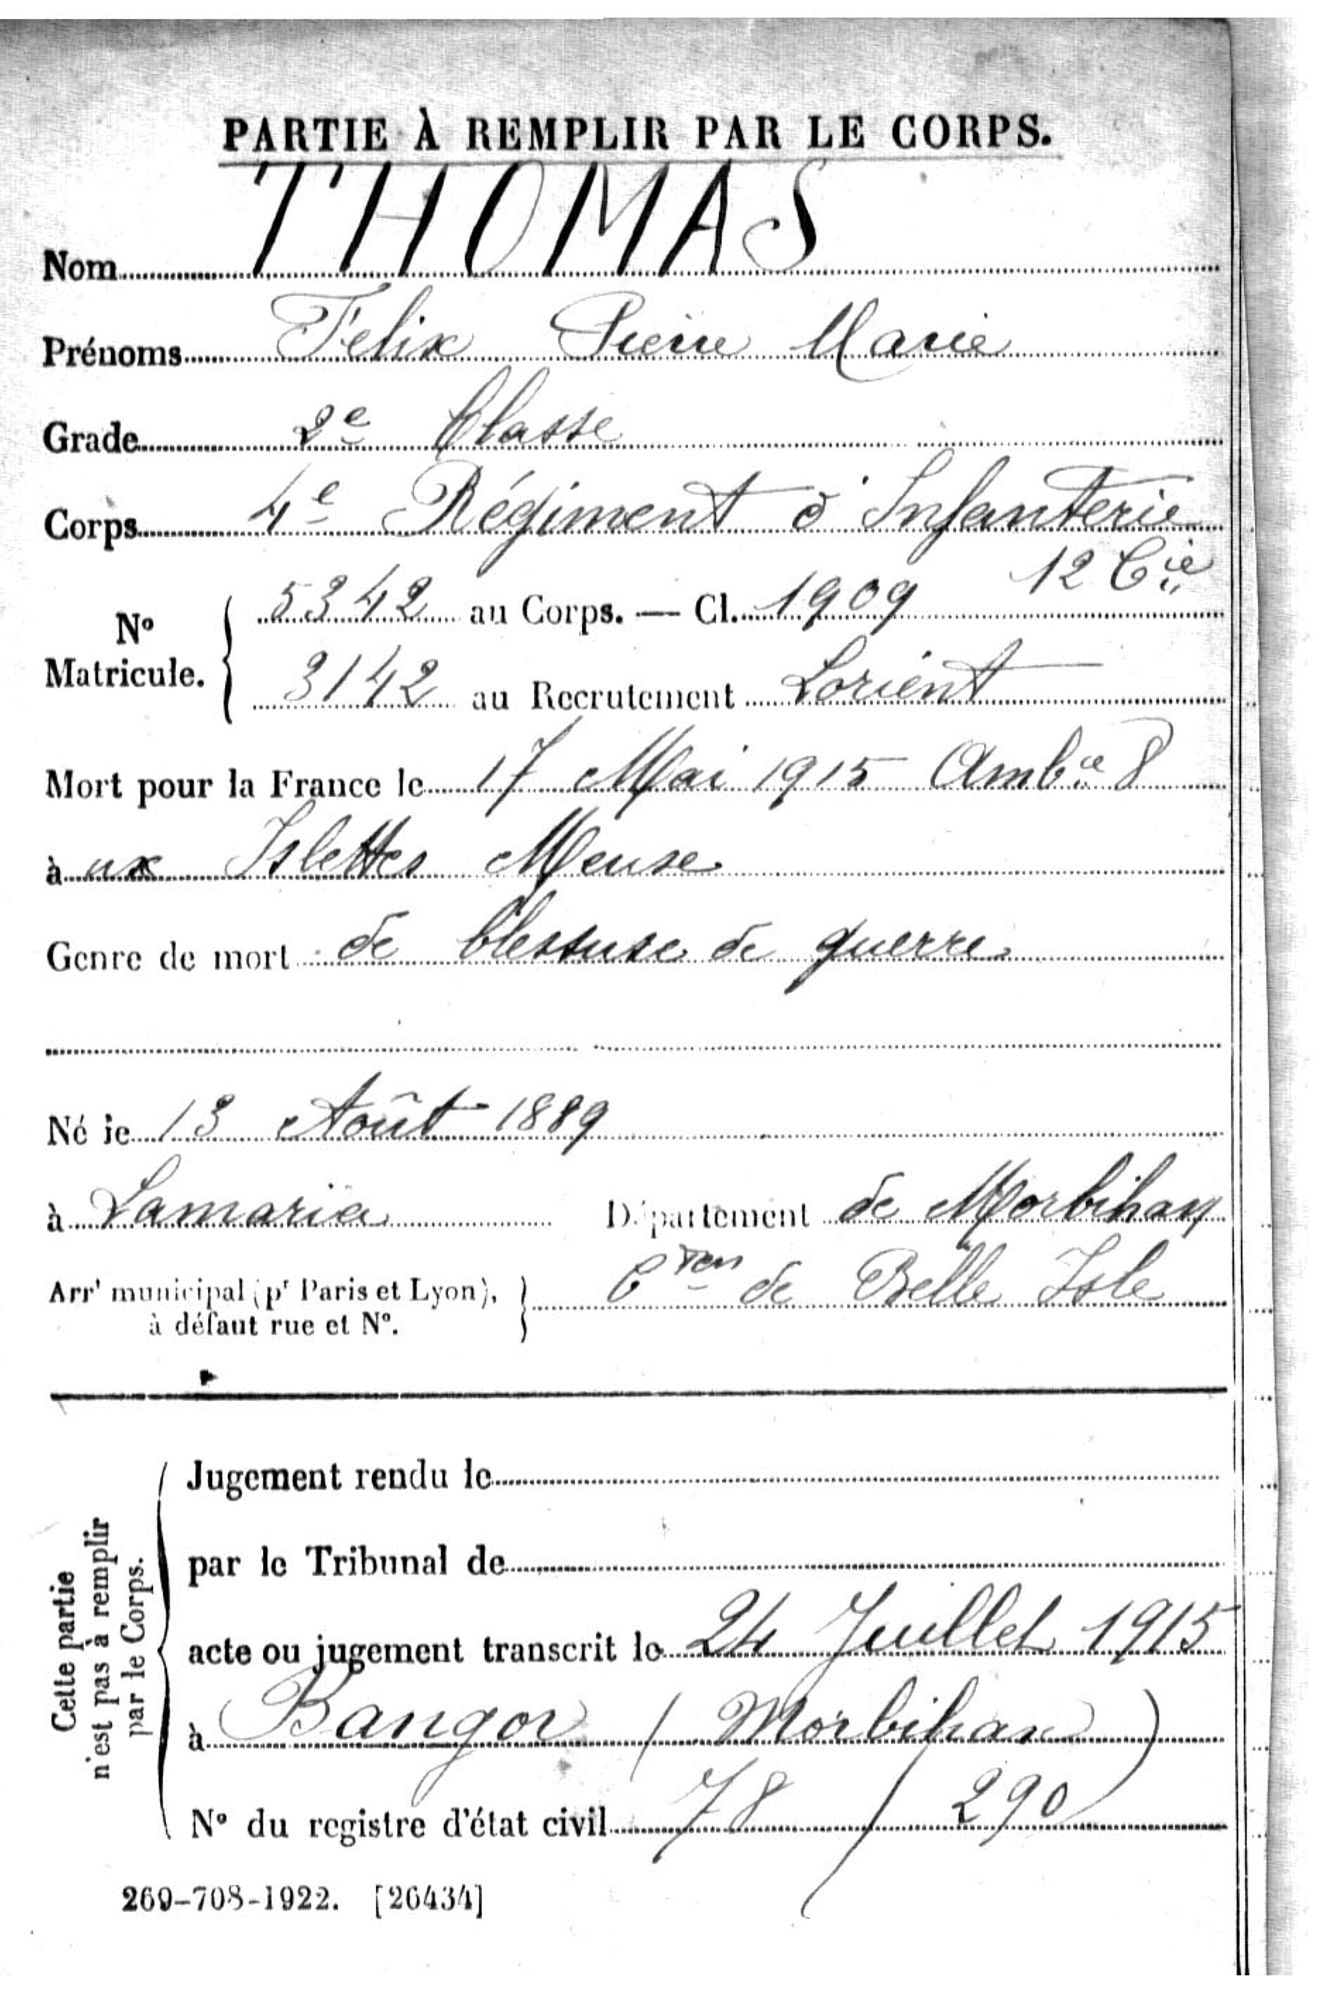 PARTIE À REMPLIR PAR LE CORPS.
Nom THOMAS
Prénoms Felix Pierre Marie
Grade 2e Classe
Corps 4e Régiment d'Infanterie
12 Cie
No Matricule. { 5342 au Corps. — Cl. 1909
3142 au Recrutement Lorient
Mort pour la France le 17 Mai 1915 Ambce 8
à ux Islettes Meuse
Genre de mort de blessure de guerre
Né le 13 Août 1889
à Lamaria Département de Morbihan
Arrt municipal (pr Paris et Lyon), à défaut rue et No. } Cton de Belle Isle
Cette partie n'est pas à remplir par le Corps.
Jugement rendu le
par le Tribunal de
acte ou jugement transcrit le 24 Juillet 1915
à Bangor (Morbihan)
No du registre d'état civil 78 / 290
269-708-1922. [26434]